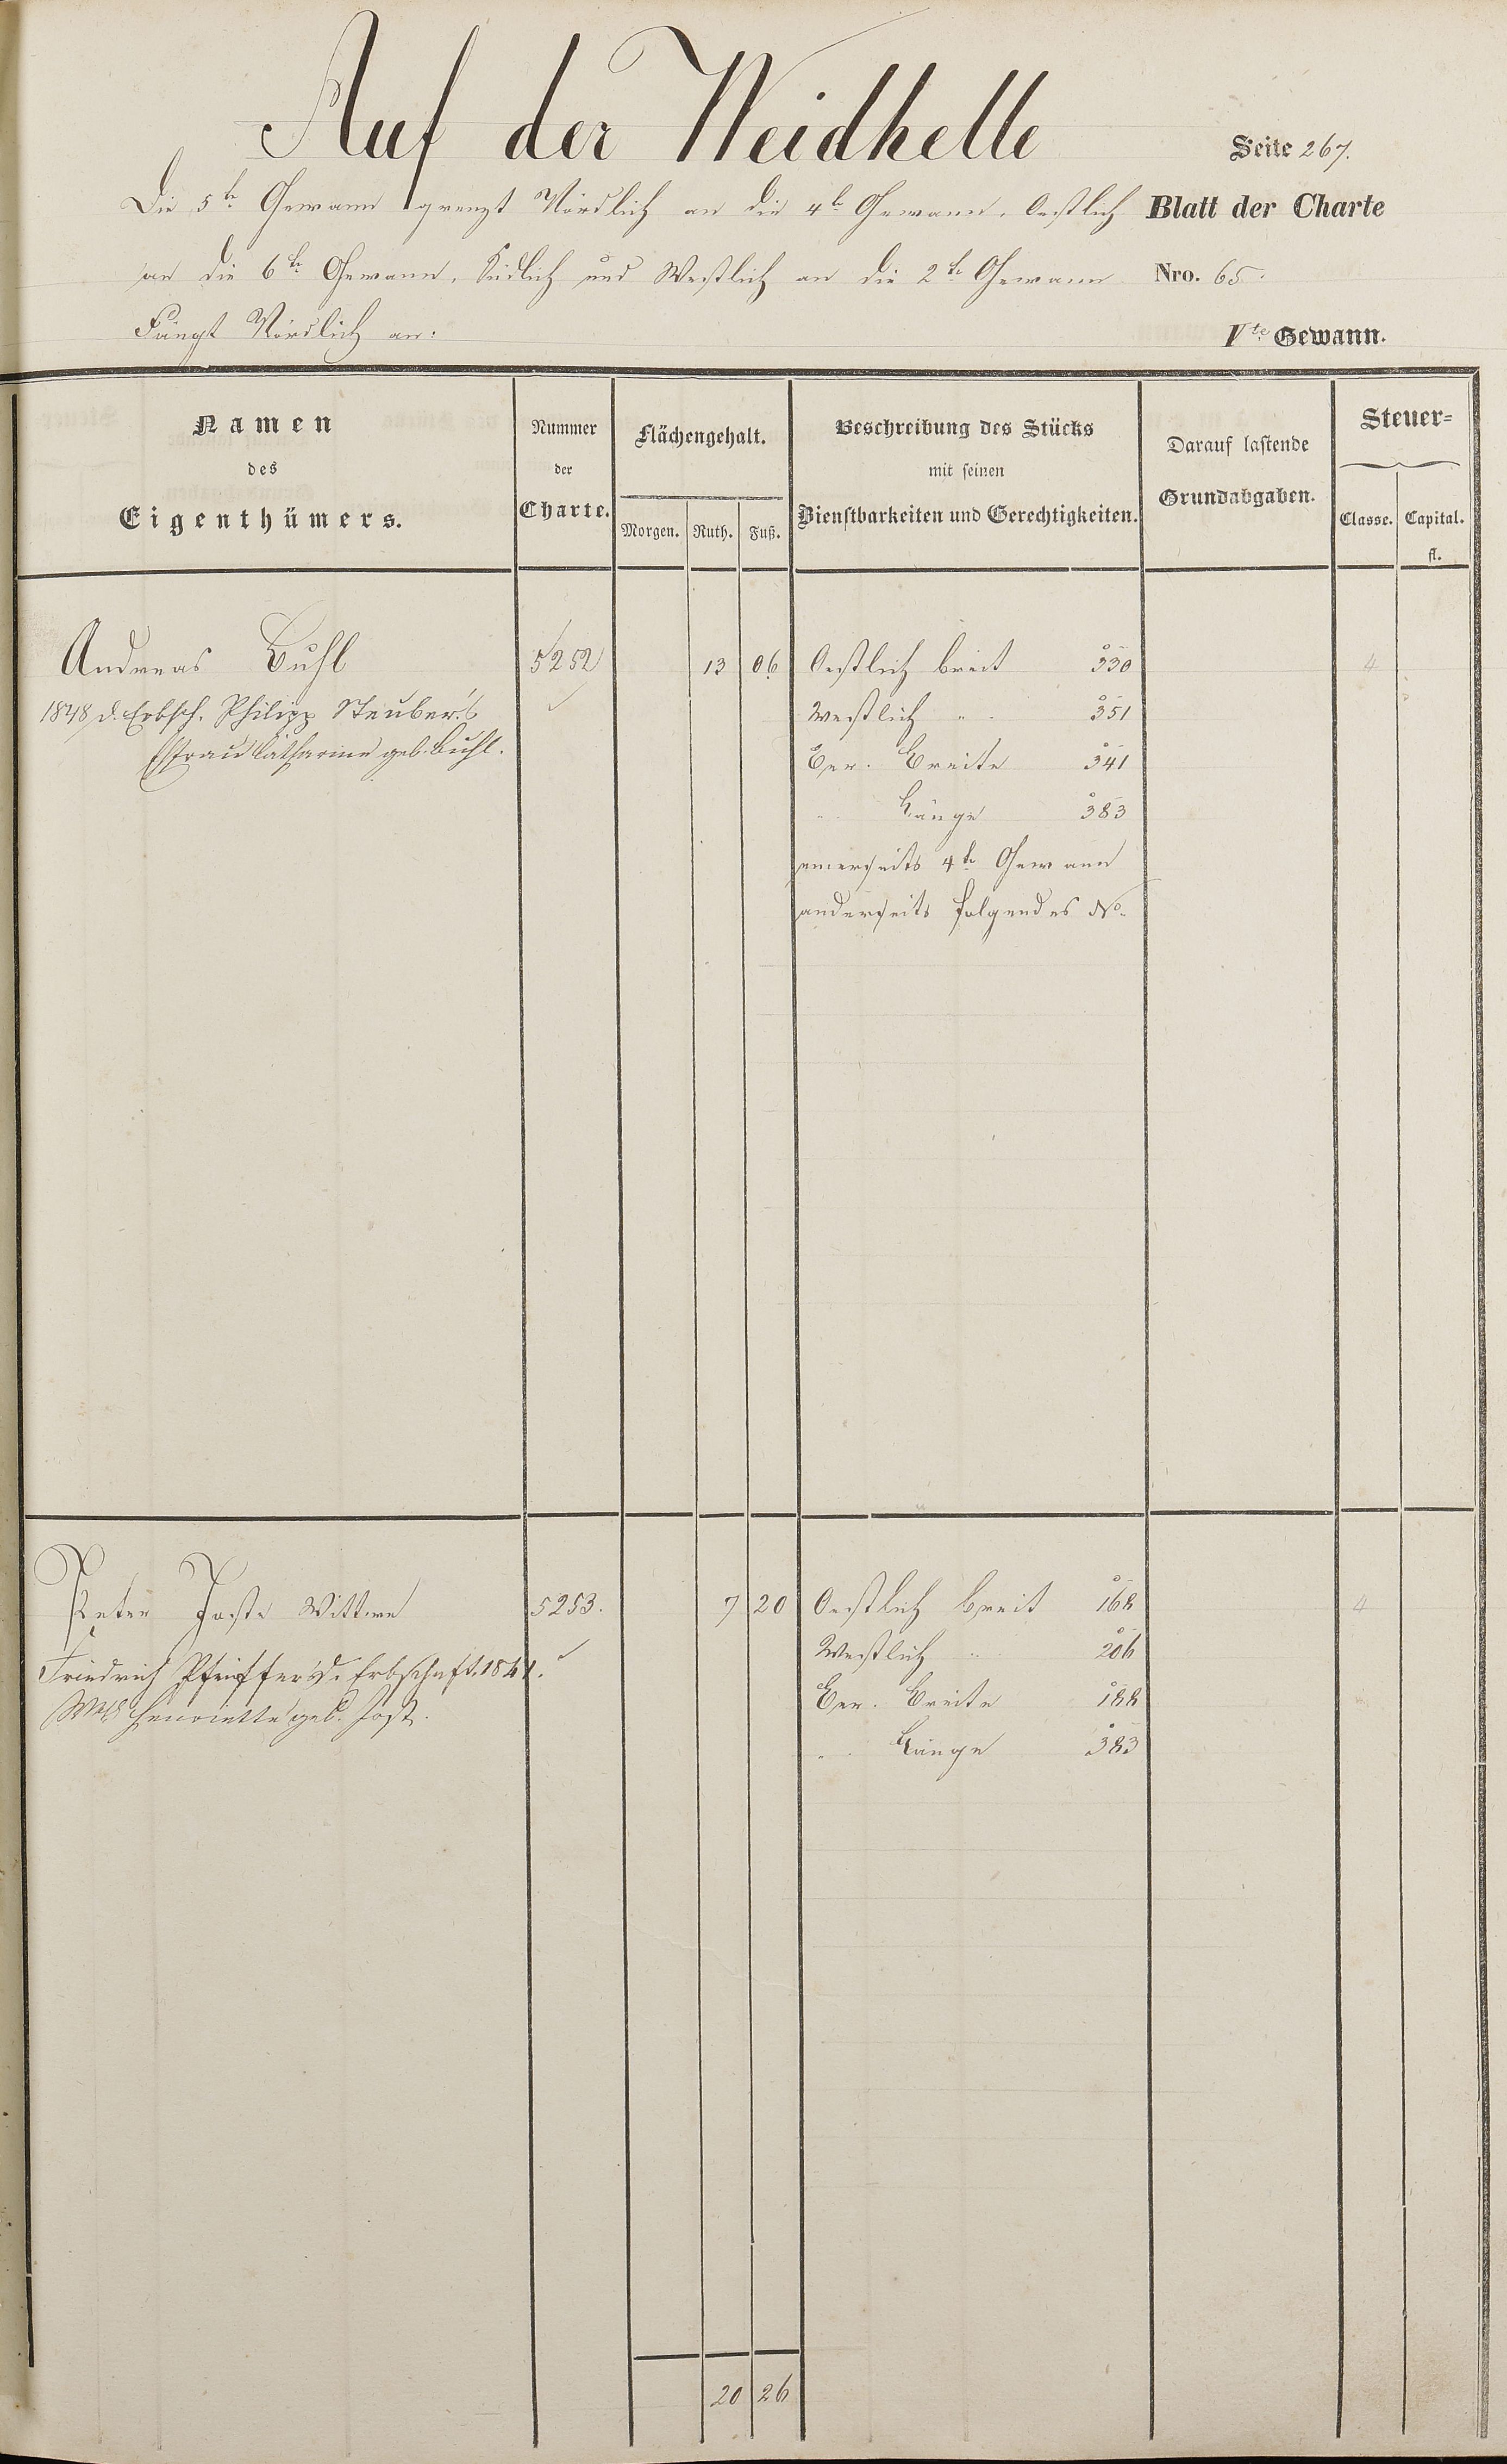 Auf der Weidhelle
Seite 267.
Die 5te Gewann grenzt Nördlich an die 4te Gewann, Oestlich
Blatt der Charte
an die 6te Gewann, Südlich und Westlich an die 2te Gewann
Nro. 65.
Fängt Nördlich an:
Vte Gewann.
Namen
des
Eigenthümers.
Nummer
der
Charte.
Flächengehalt.
Morgen. Ruth. Fuß.
Beschreibung des Stücks
mit seinen
Dienstbarkeiten und Gerechtigkeiten.
Darauf lastende
Grundabgaben.
Steuer=
Classe. Capital.
fl.
Andreas Buhl 5252 13 06 Oestlich breit 330 4
1848 d. Erbsch. Philipp Steuber's Westlich " " 351
Ehfrau Catharine geb. Buhl. Ber. Breite 341
" Länge 383
einerseits 4te Gewann
anderseits folgendes No.
Peter Josts Wittwe 5253. 7 20 Oestlich breit 168 4
Westlich " 206
Friedrich Pfeiffer's d. Erbschaft. 1841.
Ber. Breite 188
Henriette geb. Jost.
" Länge 383
20 26